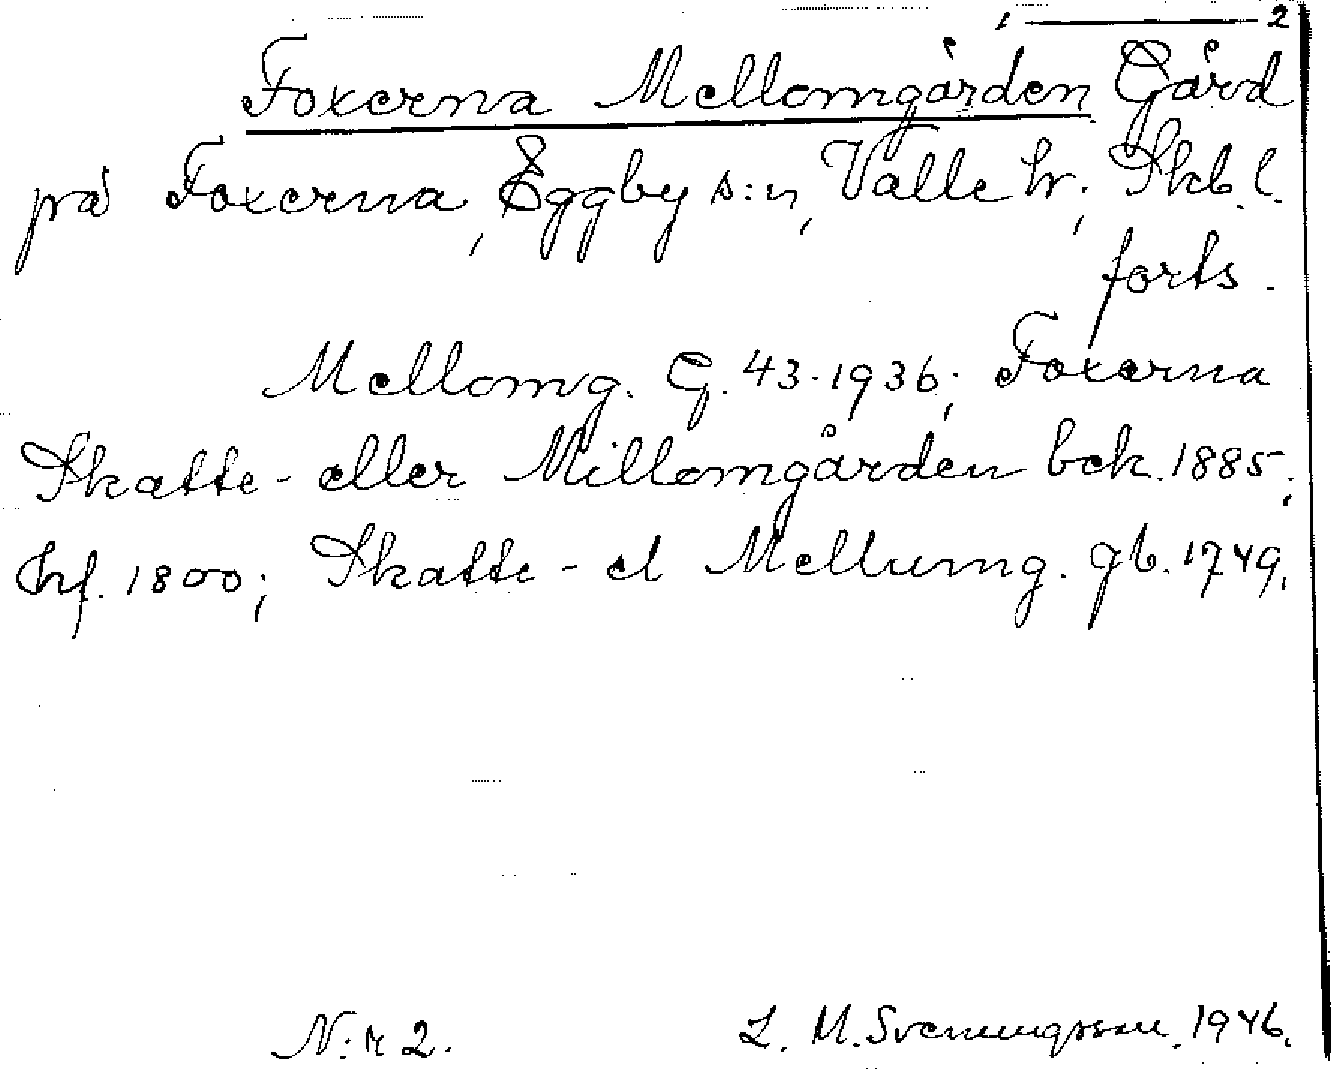 1 ——— 2
Foxerna Mellomgården Gård
på Foxerna, Eggby s:n, Valle hr; Skb. l.
forts.
Mellomg. G. 43. 1936; Foxerna
Skatte- eller Millomgården bek. 1885;
hf. 1800; Skatte- el Mellumg. gb. 1749.
N:r 2. L. M. Svenungsson. 1946.